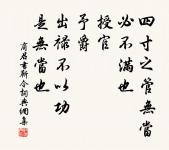 四寸之管無當
必不滿也
授官
予爵
出祿不以功
是無當也
商君書靳令詞典網集